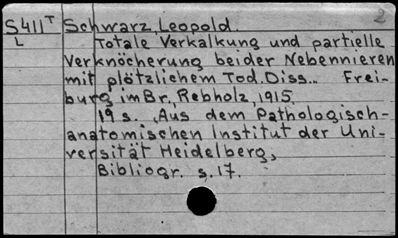 2
S411T Schwarz, Leopold.
L Totale Verkalkung und partielle
Verknöcherung beider Nebennieren
mit plötzlichem Tod. Diss.. Frei-
burg im Br., Rebholz, 1915.
19 s.. Aus dem Pathologisch-
anatomischen Institut der Uni-
versität Heidelberg,
Bibliogr. s. 17.